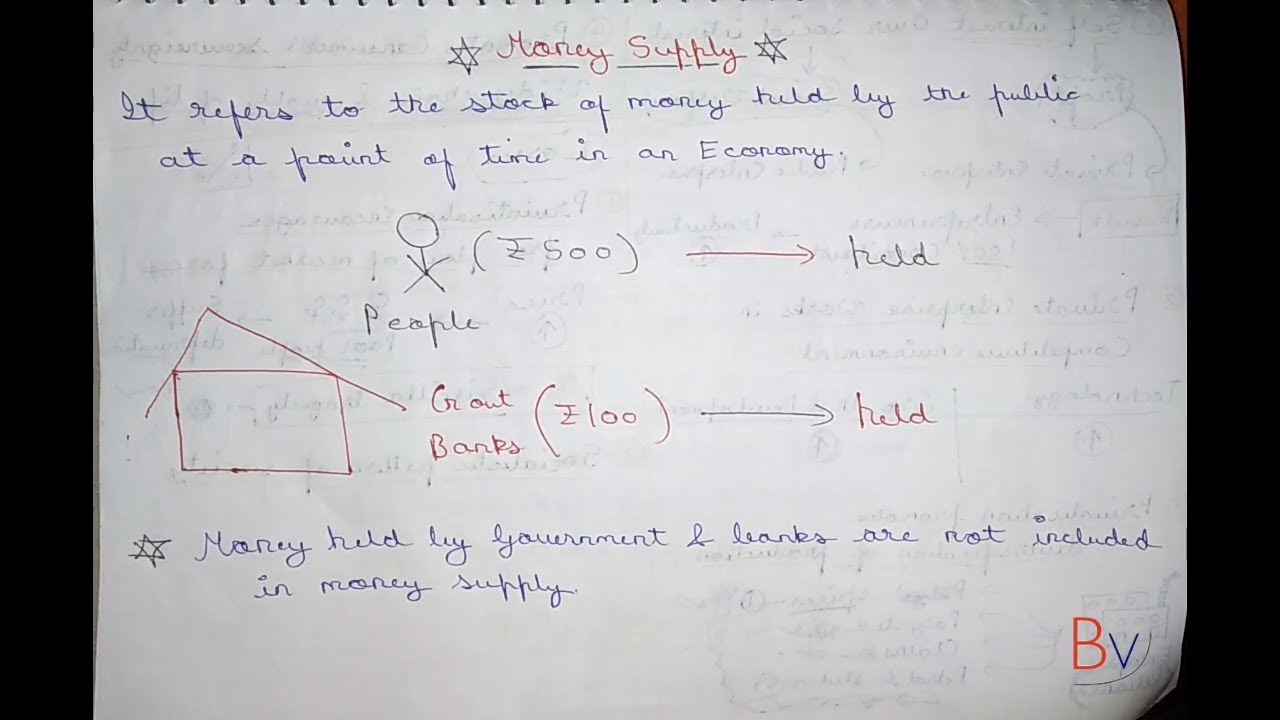 Money Supply
It refers to the stock of money held by the public
at a point of time in an Economy.
(₹500) → held
People
Govt
Banks (₹100) → held
Money held by Government & banks are not included
in money supply.
BV